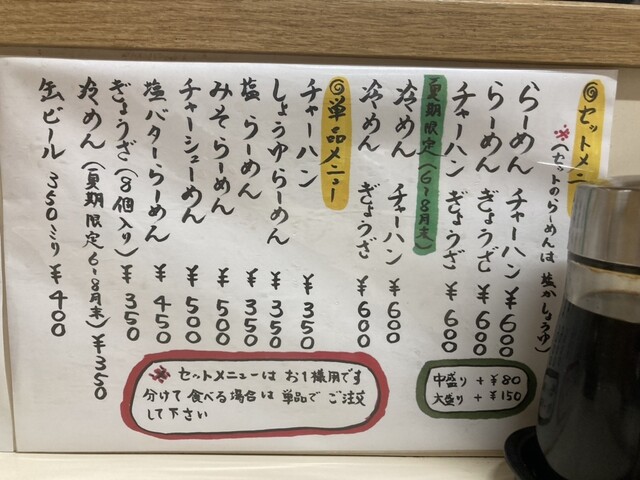 ◎セットメニ
※(セットのらーめんは 塩かしょうゆ)
らーめん チャーハン ¥600
らーめん ぎょうざ ¥600
チャーハン ぎょうざ ¥600
夏期限定(6~8月末)
冷めん チャーハン ¥600
冷めん ぎょうざ ¥600
◎単品メニュー
チャーハン ¥350
しょうゆらーめん ¥350
塩らーめん ¥350
みそらーめん ¥500
チャーシューめん ¥500
塩バターらーめん ¥450
ぎょうざ(8個入り) ¥350
冷めん(夏期限定6~8月末) ¥350
缶ビール 350ミリ ¥400
中盛り + ¥80
大盛り + ¥150
※ セットメニューは お1様用です
分けて 食べる場合は 単品で ご注文
して下さい